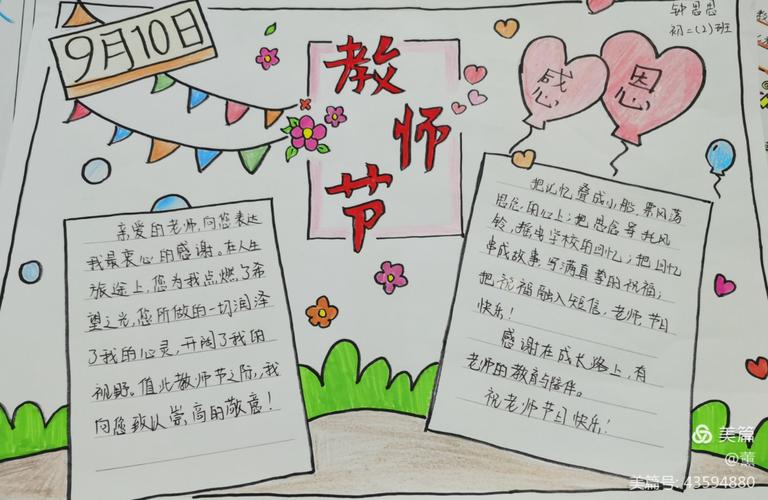 9月10日
教师节
感恩
钟思思
初二(2)班
亲爱的老师,向您表达
我最衷心的感谢。在人生
旅途上,您为我点燃了希
望之光,您所做的一切润泽
了我的心灵,开阔了我的
视野。值此教师节之际,我
向您致以崇高的敬意!
把记忆叠成小船,飘风荡
在心上;把思念寄托风
铃,摇曳学校的回忆;把回忆
串成故事,写满真挚的祝福;
把祝福融入短信,老师,节日
快乐!
感谢在成长路上,有
老师的教育与陪伴。
祝老师节日快乐!
美篇
@薰
美篇号:43594880